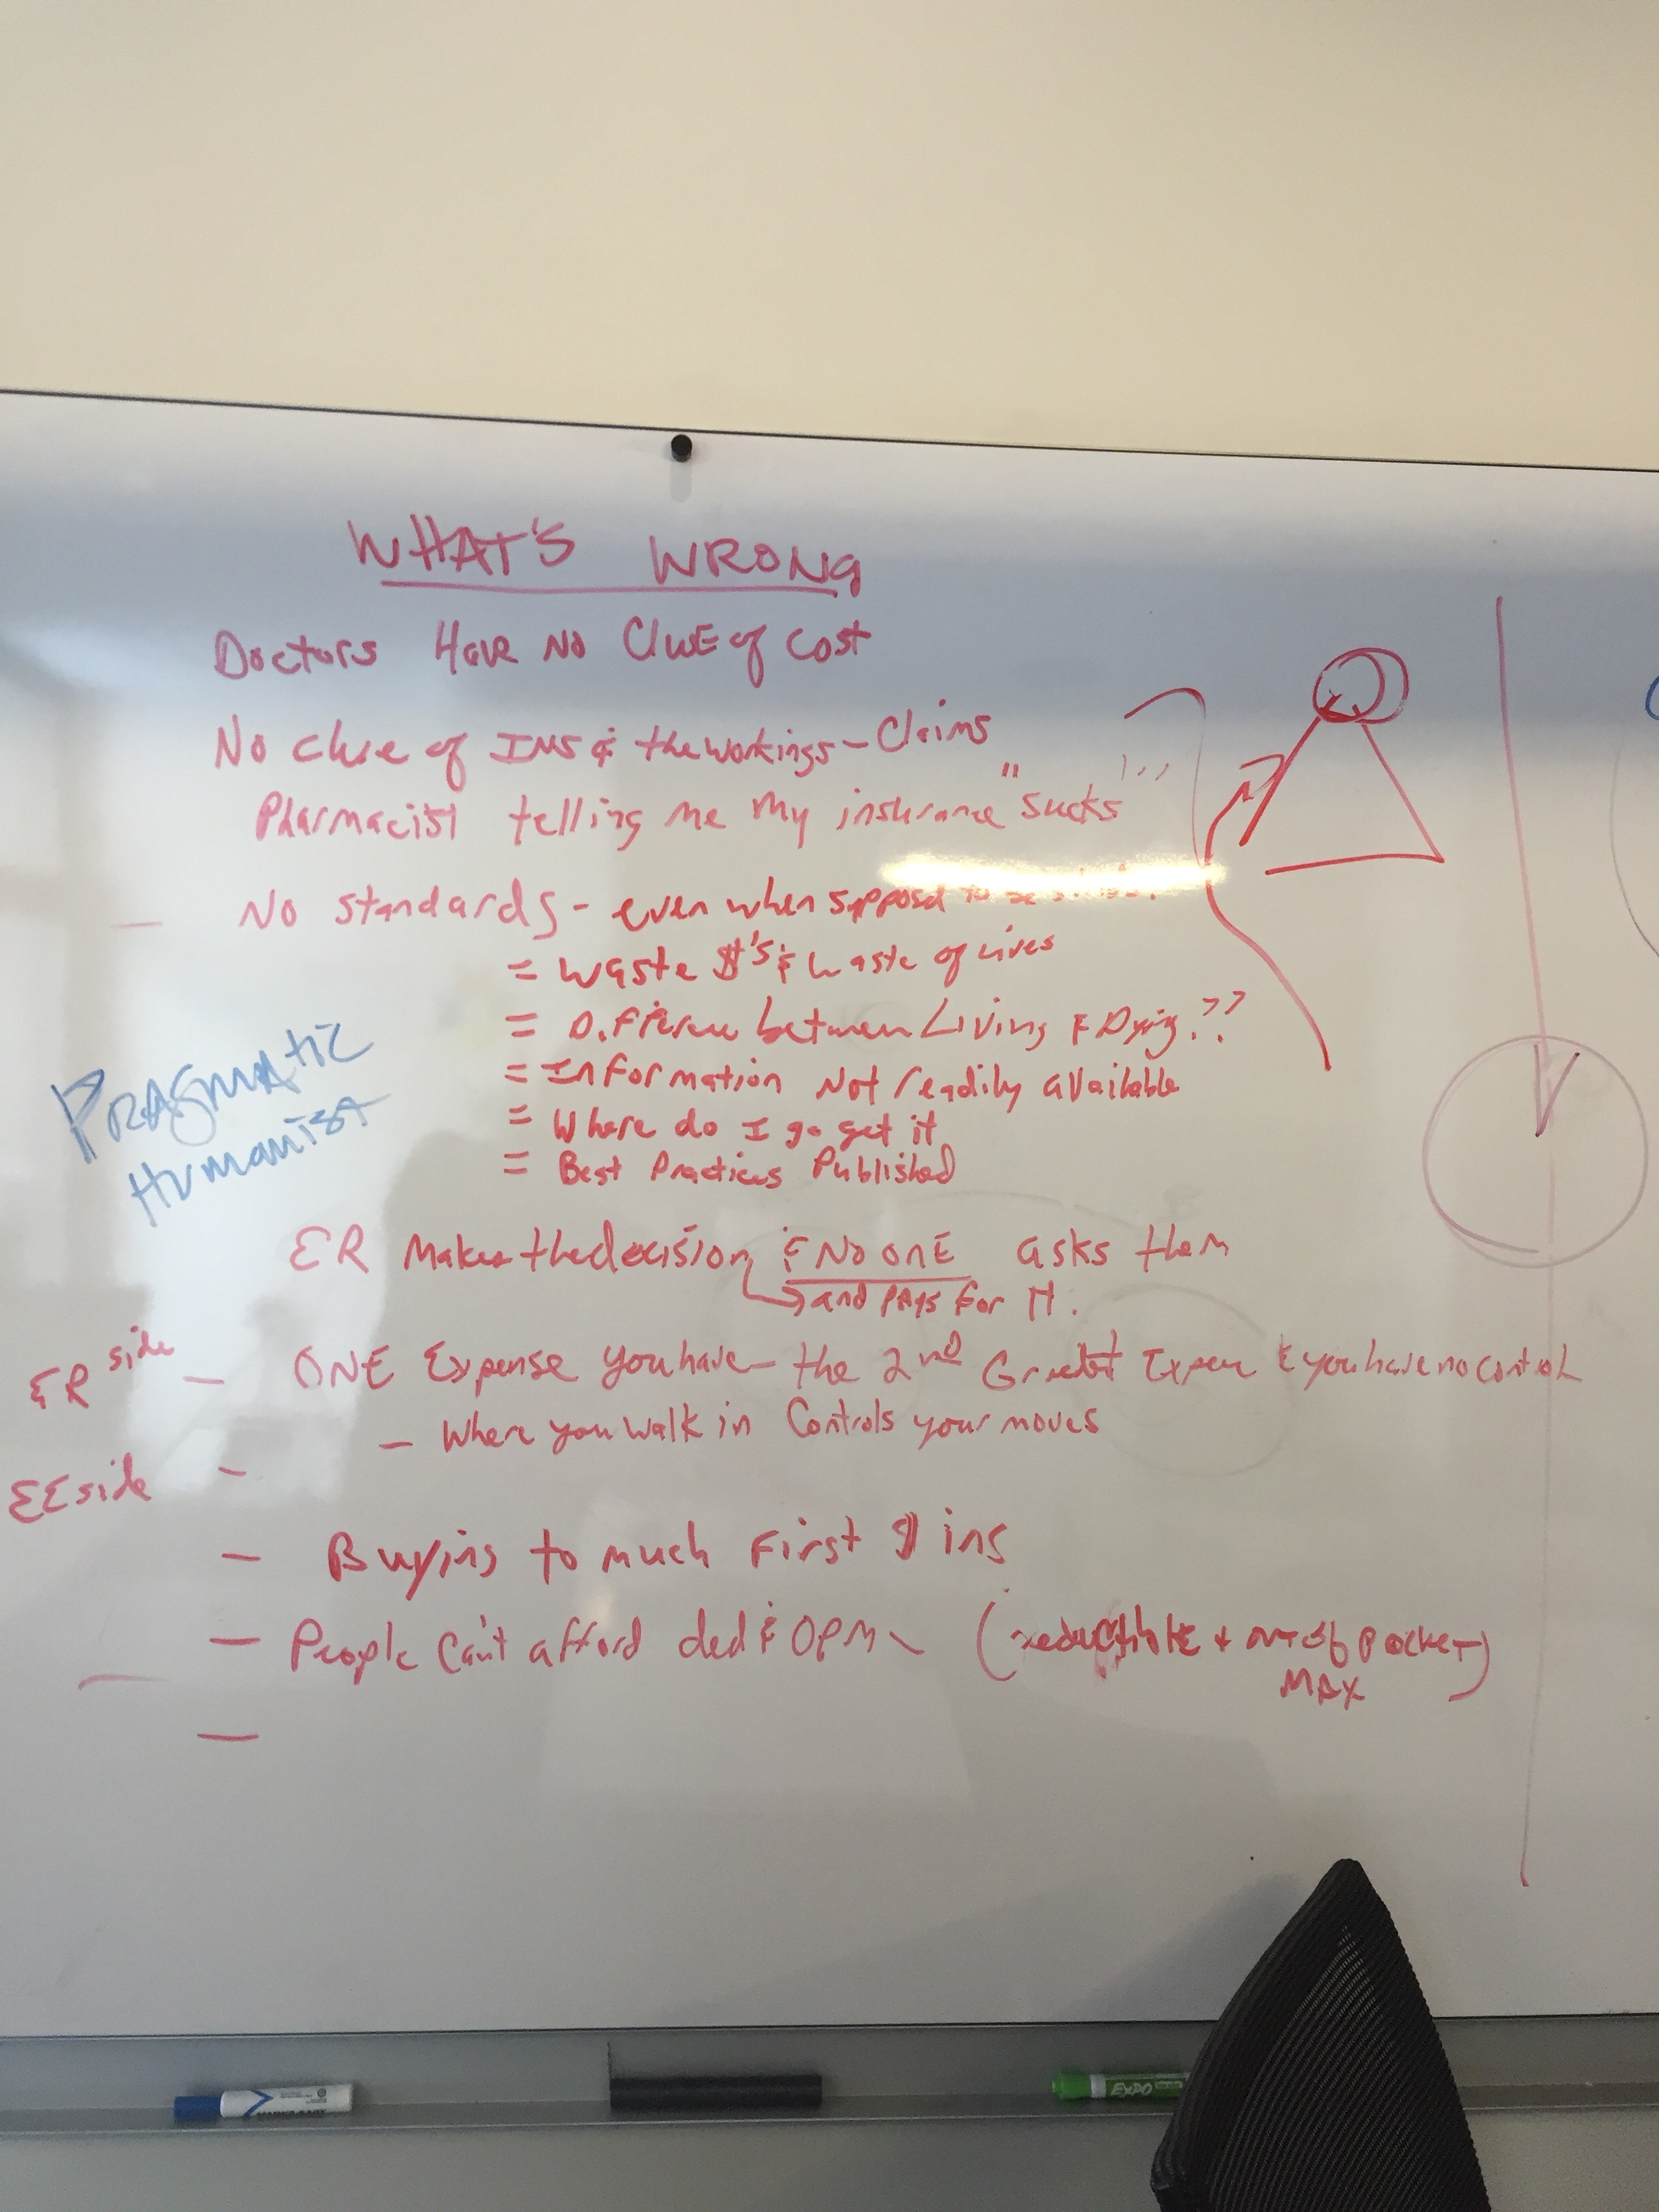 WHAT'S WRONG
Doctors Have No Clue of Cost
No clue of INS & the workings - Claims
Pharmacist telling me my insurance "sucks"
- No standards - even when suppose to be
= Waste $'s & waste of lives
= Difference between Living & Dying??
= Information Not readily available
= Where do I go get it
= Best Practices Published
PRAGMATIC
HUMANIST
ER Makes the decision & No onE asks them
and PAYS for it.
ER side - ONE Expense you have - the 2nd Greatest Expense & you have no control
- Where you walk in Controls your moves
EE side -
- Buying to much First $ ins
- People Can't afford ded & OPM - (deductible + out of Pocket
MAX)
EXPO